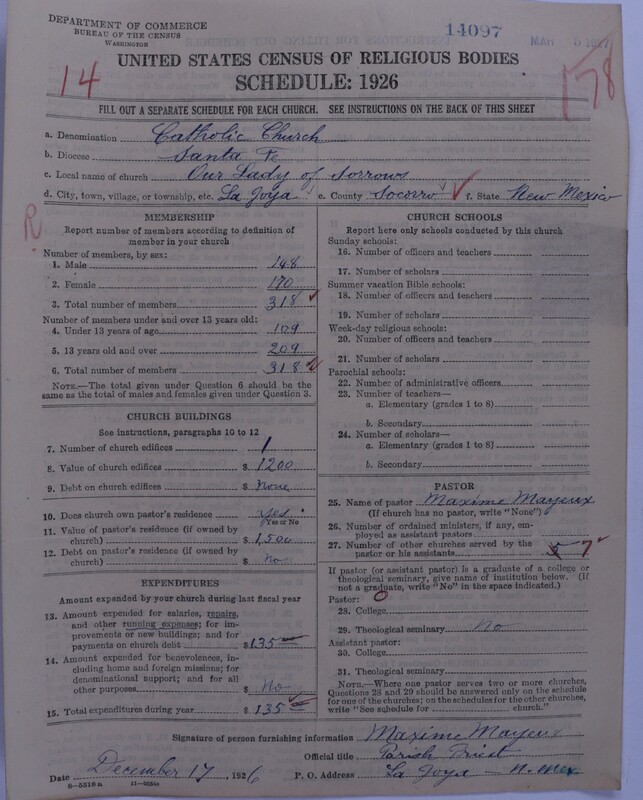 DEPARTMENT OF COMMERCE
BUREAU OF THE CENSUS
WASHINGTON
14097
UNITED STATES CENSUS OF RELIGIOUS BODIES
SCHEDULE: 1926
14
178
FILL OUT A SEPARATE SCHEDULE FOR EACH CHURCH. SEE INSTRUCTIONS ON THE BACK OF THIS SHEET
a. Denomination Catholic Church
b. Diocese Santa Fe
c. Local name of church Our Lady of Sorrows
d. City, town, village, or township, etc. La Joya e. County Socorro f. State New Mexico
R
MEMBERSHIP
Report number of members according to definition of
member in your church
Number of members, by sex:
1. Male 148
2. Female 170
3. Total number of members 318
Number of members under and over 13 years old:
4. Under 13 years of age 109
5. 13 years old and over 209
6. Total number of members 318
NOTE.—The total given under Question 6 should be
same as the total of males and females given under Question 3.
CHURCH BUILDINGS
See instructions, paragraphs 10 to 12
7. Number of church edifices 1
8. Value of church edifices $ 1200
9. Debt on church edifices $ None
10. Does church own pastor's residence yes
Yes or No
11. Value of pastor's residence (if owned by
church) $ 1,500
12. Debt on pastor's residence (if owned by
church) $ No
EXPENDITURES
Amount expended by your church during last fiscal year
13. Amount expended for salaries, repairs,
and other running expenses; for im-
provements or new buildings; and for
payments on church debt $ 135
14. Amount expended for benevolences, in-
cluding home and foreign missions; for
denominational support; and for all
other purposes $ No
15. Total expenditures during year $ 135
CHURCH SCHOOLS
Report here only schools conducted by this church
Sunday schools:
16. Number of officers and teachers
17. Number of scholars
Summer vacation Bible schools:
18. Number of officers and teachers
19. Number of scholars
Week-day religious schools:
20. Number of officers and teachers
21. Number of scholars
Parochial schools:
22. Number of administrative officers
23. Number of teachers—
a. Elementary (grades 1 to 8)
b. Secondary
24. Number of scholars—
a. Elementary (grades 1 to 8)
b. Secondary
PASTOR
25. Name of pastor Maxime Mayeux
(If church has no pastor, write "None")
26. Number of ordained ministers, if any, em-
ployed as assistant pastors
27. Number of other churches served by the
pastor or his assistants 7
If pastor (or assistant pastor) is a graduate of a college or
theological seminary, give name of institution below. (If
not a graduate, write "No" in the space indicated.)
Pastor: O
28. College
29. Theological seminary No
Assistant pastor:
30. College
31. Theological seminary
NOTE.—Where one pastor serves two or more churches,
Questions 28 and 29 should be answered only on the schedule
for one of the churches; on the schedules for the other churches,
write "See schedule for church."
Signature of person furnishing information Maxime Mayeux
Official title Parish Priest
Date December 17, 1926 P. O. Address La Joya - N. Mex